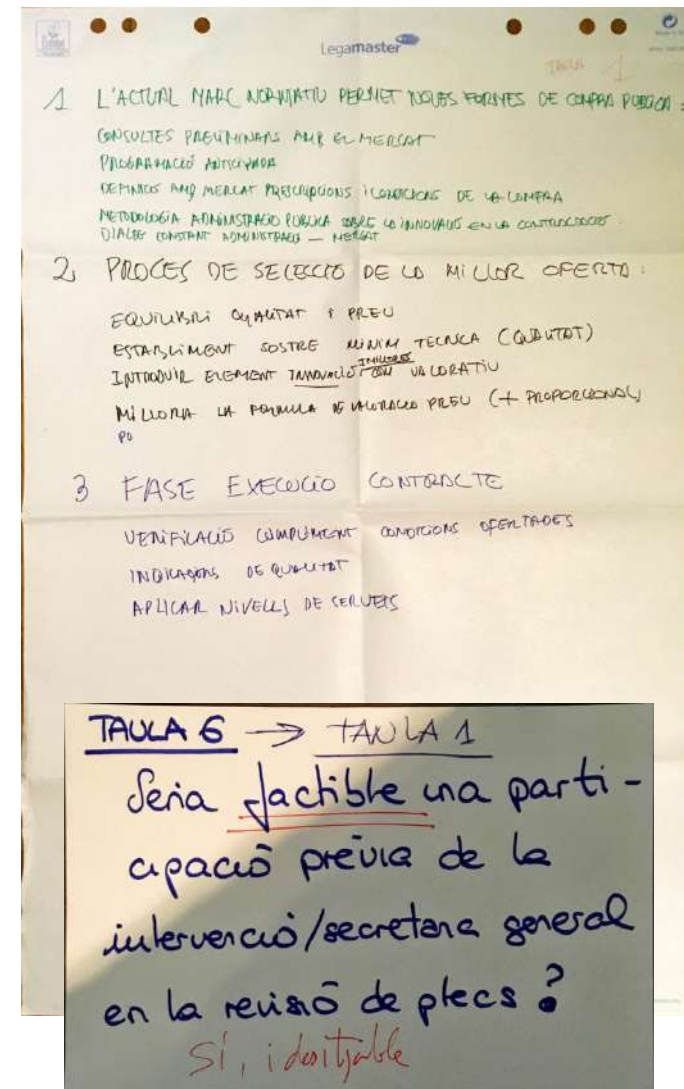 Legamaster
TAULA 1
1 L'ACTUAL MARC NORMATIU PERMET NOVES FORMES DE COMPRA PÚBLICA:
CONSULTES PRELIMINARS AMB EL MERCAT
PROGRAMACIÓ ANTICIPADA
DEFINICIÓ AMB MERCAT PRESCRIPCIONS I CONDICIONS DE LA COMPRA
METODOLOGIA ADMINISTRACIÓ PÚBLICA SOBRE LA INNOVACIÓ EN LA CONTRACTACIÓ.
DIÀLEG CONSTANT ADMINISTRACIÓ — MERCAT
2 PROCES DE SELECCIÓ DE LA MILLOR OFERTA:
EQUILIBRI QUALITAT I PREU
ESTABLIMENT SOSTRE MÍNIM TECNICA (QUALITAT)
INTRODUIR ELEMENT INNOVACIÓ I MILLORES COM VALORATIU
MILLORAR LA FORMULA DE VALORACIÓ PREU (+ PROPORCIONAL)
PO
3 FASE EXECUCIÓ CONTRACTE
VERIFICACIÓ COMPLIMENT CONDICIONS OFERTADES
INDICADORS DE QUALITAT
APLICAR NIVELLS DE SERVEIS
TAULA 6 → TAULA 1
Seria factible una parti-
cipació prèvia de la
intervenció/secretaria general
en la revisió de plecs?
Sí, i desitjable